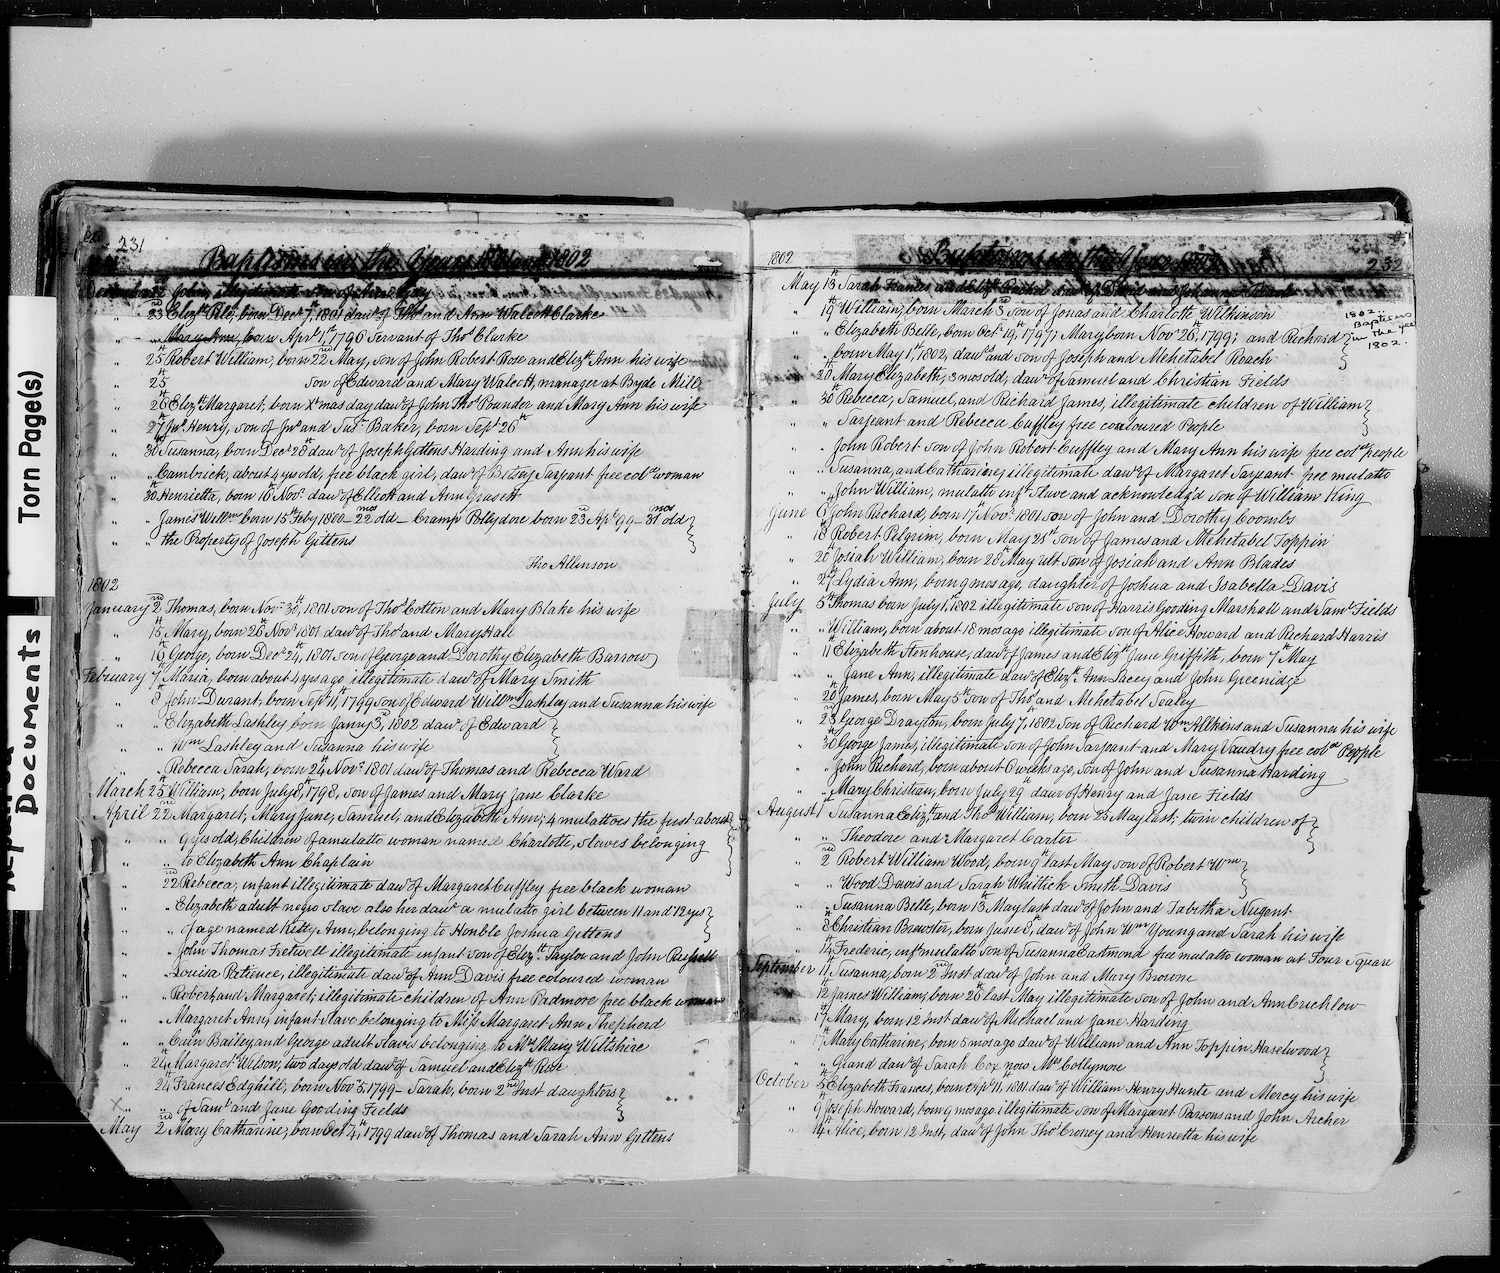 Torn Page(s)
Documents
231
Baptisms in the Year 1802
December 22 John, illegitimate son of
" 23rd Elizth born Decr 7th, 1801 dawr of Thos and Ann Walcott Clarke
" " Mary Ann, born Aprl 1st, 1796 Servant of Thos Clarke
" 25th Robert William, born 22nd May, son of John Robert Rose and Elizth Ann his wife
" 25th son of Edward and Mary Walcott, manager at Byde Mill
" 26th Elizth Margaret, born Xtmas day dawr of John Thos Pounder and Mary Ann his wife
" 27th Jno. Henry, son of Jno and Susn Baker, born Sept 26th
" 30th Susanna, born Decr 28th dawr of Joseph Gittens Harding and Ann his wife
" " Cambrick, about 4 yrs old, free black girl, dawr of Betsey Sarjeant free cold woman
" 30th Henrietta, born 16th Novr dawr of Ellcott and Ann Grasett
" " James Willm born 15th Feby 1800 – 22 mos old – Cramp Pollydore born 23rd Apl 99 – 31 mos old
" " the Property of Joseph Gittens
Thos Allinson
1802
January 2nd Thomas, born Novr 30th, 1801 son of Thos Cotton and Mary Blake his wife
" 15th Mary, born 26th Novr 1801 dawr of Thos and Mary Hall
" 16th George, born Decr 24th, 1801 son of George and Dorothy Elizabeth Barrow
February 7th Maria, born about 4 yrs ago illegitimate dawr of Mary Smith
" 8th John Durant, born Sept 11th, 1799 son of Edward Willm Lashley and Susanna his wife
" " Elizabeth Lashley born Janry 3rd, 1802 dawr of Edward
" " Wm Lashley and Susanna his wife
" " Rebecca Sarah, born 24th Novr 1801 dawr of Thomas and Rebecca Ward
March 25th William, born July 8th, 1798, son of James and Mary Jane Clarke
April 22nd Margaret, Mary Jane, Samuel, and Elizabeth Ann; 4 mulattoes the first about
" " 9 yrs old, Children of a mulatto woman named Charlotte, slaves belonging
" " to Elizabeth Ann Chaplain
" 22nd Rebecca, infant illegitimate dawr of Margaret Cuffley free black woman
" " Elizabeth adult negro slave also her dawr a mulatto girl between 11 and 12 yrs
" " of age named Kitty Ann, belonging to Honble Joshua Gittens
" " John Thomas Fretwell illegitimate infant son of Elizth Taylor and John Russell
" " Louisa Patience, illegitimate dawr of Ann Davis free coloured woman
" " Robert, and Margaret, illegitimate children of Ann Padmore free black woman
" " Margaret Ann, infant slave belonging to Miss Margaret Ann Shepherd
" " Cuin Bailey and George adult slaves belonging to Mrs Mary Wiltshire
" 24th Margaret Welson, two days old dawr of Samuel and Elizth Rose
" 24th Frances Edghill, born Novr 5, 1799 – Sarah, born 2nd Inst daughters
" " of Saml and Jane Gooding Fields
May 2nd Mary Catharine, born Octr 4th, 1799 dawr of Thomas and Sarah Ann Gittens
1802
Baptisms in the Year
232
1802
Baptisms
in the year
1802.
May 13th Sarah Frances and Elizth Rachel dawr of David and Johanna
" 19th William, born March 3rd son of Jonas and Charlotte Wilkinson
" " Elizabeth Belle, born Octr 19th, 1797; Mary born Novr 26th, 1799; and Richard
" " born May 1st, 1802, dawrs and son of Joseph and Mehetabel Roach
" 20th Mary Elizabeth, 3 mos old, dawr of Samuel and Christian Fields
" 30th Rebecca, Samuel, and Richard James, illegitimate children of William
" " Sarjeant and Rebecca Cuffley free coloured People
" " John Robert son of John Robert Cuffley and Mary Ann his wife free cold people
" " Susanna, and Catharine, illegitimate dawr of Margaret Sarjeant free mulatto
" " John William, mulatto inft slave and acknowledg'd son of William King
June 6th John Richard, born 17th Novr 1801 son of John and Dorothy Coombs
" 18th Robert Pelgrim, born May 25th son of James and Mehetabel Toppin
" 20th Josiah William, born 20th May ult son of Josiah and Ann Blades
" 27th Lydia Ann, born 9 mos ago, daughter of Joshua and Isabella Davis
July 5th Thomas born July 1st, 1802 illegitimate son of Harris Gooding Marshall and Saml Fields
" " William, born about 18 mos ago illegitimate son of Alice Howard and Richard Harris
" 11th Elizabeth Stenhouse, dawr of James and Elizth Jane Griffith, born 7th May
" " Jane Ann, illegitimate dawr of Elizth Ann Lacey and John Greenidge
" 20th James, born May 5th son of Thos and Mehetabel Sealey
" 23rd George Drayton, born July 7th, 1802 son of Richard Wm Allkins and Susanna his wife
" 30th George James, illegitimate son of John Sarjeant and Mary Vaudry free cold People
" " John Richard, born about 6 weeks ago, son of John and Susanna Harding
" " Mary Christian, born July 29th dawr of Henry and Jane Fields
August 1st Susanna Elizth and Thos William, born 25 May last; twin children of
" " Theodore and Margaret Carter
" 2nd Robert William Wood, born 9th last May son of Robert Wm
" " Wood Davis and Sarah Whittick Smith Davis
" " Susanna Belle, born 13th May last dawr of John and Tabitha Nugent
" 8th Christian Brewster, born June 8th, dawr of John Wm Young and Sarah his wife
" 14th Frederic, inft mulatto son of Susanna Eastmond free mulatto woman at Four Square
September 11th Susanna, born 2nd Inst dawr of John and Mary Browne
" 12th James William, born 26th last May illegitimate son of John and Ann Cricklow
" 17th Mary, born 12 Inst dawr of Michael and Jane Harding
" 17th Mary Catharine, born 5 mos ago dawr of William and Ann Toppin Haselwood
" " Grand dawr of Sarah Cox now Mrs Collymore
October 5th Elizabeth Frances, born Sept 11th 1801 dawr of William Henry Hunte and Mercy his wife
" 9th Joseph Howard, born 9 mos ago illegitimate son of Margaret Parsons and John Archer
" 14th Alice, born 12 Inst, dawr of John Thos Croney and Henrietta his wife